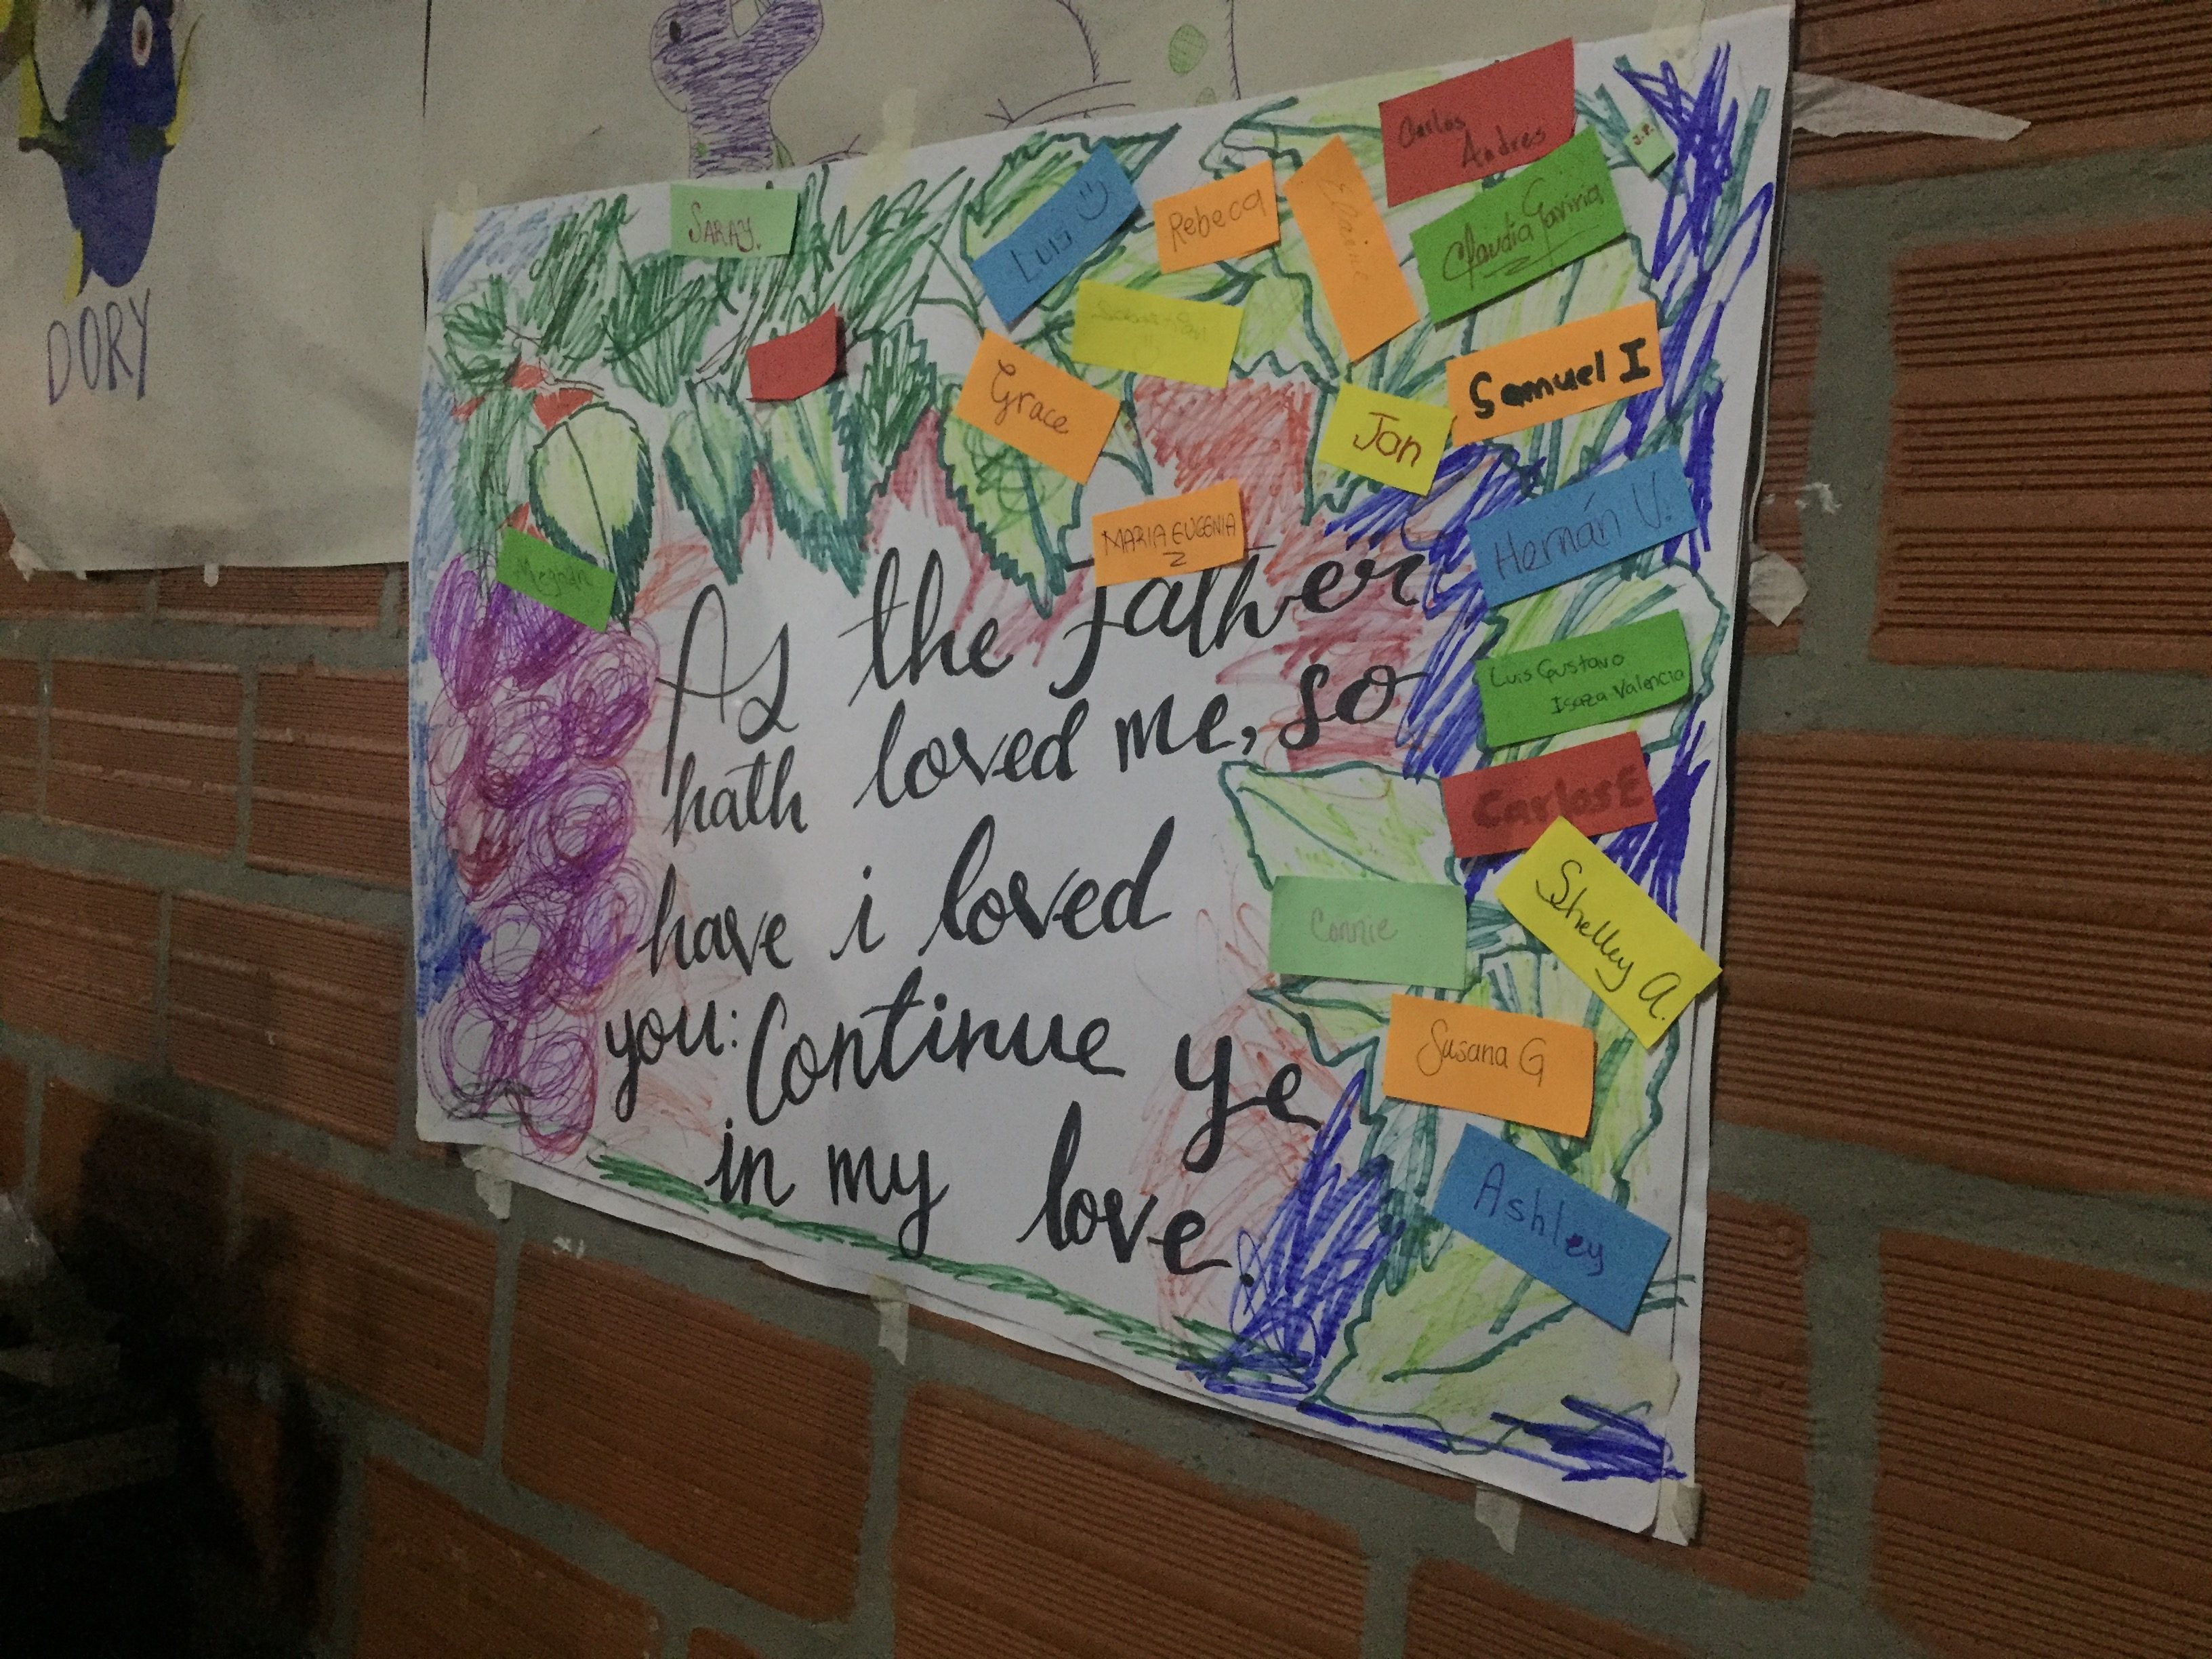 DORY
SARAY.
Luis
Rebeca
Elaine
Carlos
Andres
J.P.
Claudia Gaviria
Grace
Jan
Samuel I
MARIA EUGENIA
Z
Hernán V.
Megan
Luis Gustavo
Isaza Valencia
CarlosE
Connie
Shelley A.
Susana G
Ashley
As the Father
hath loved me, so
have i loved
you: Continue ye
in my love.